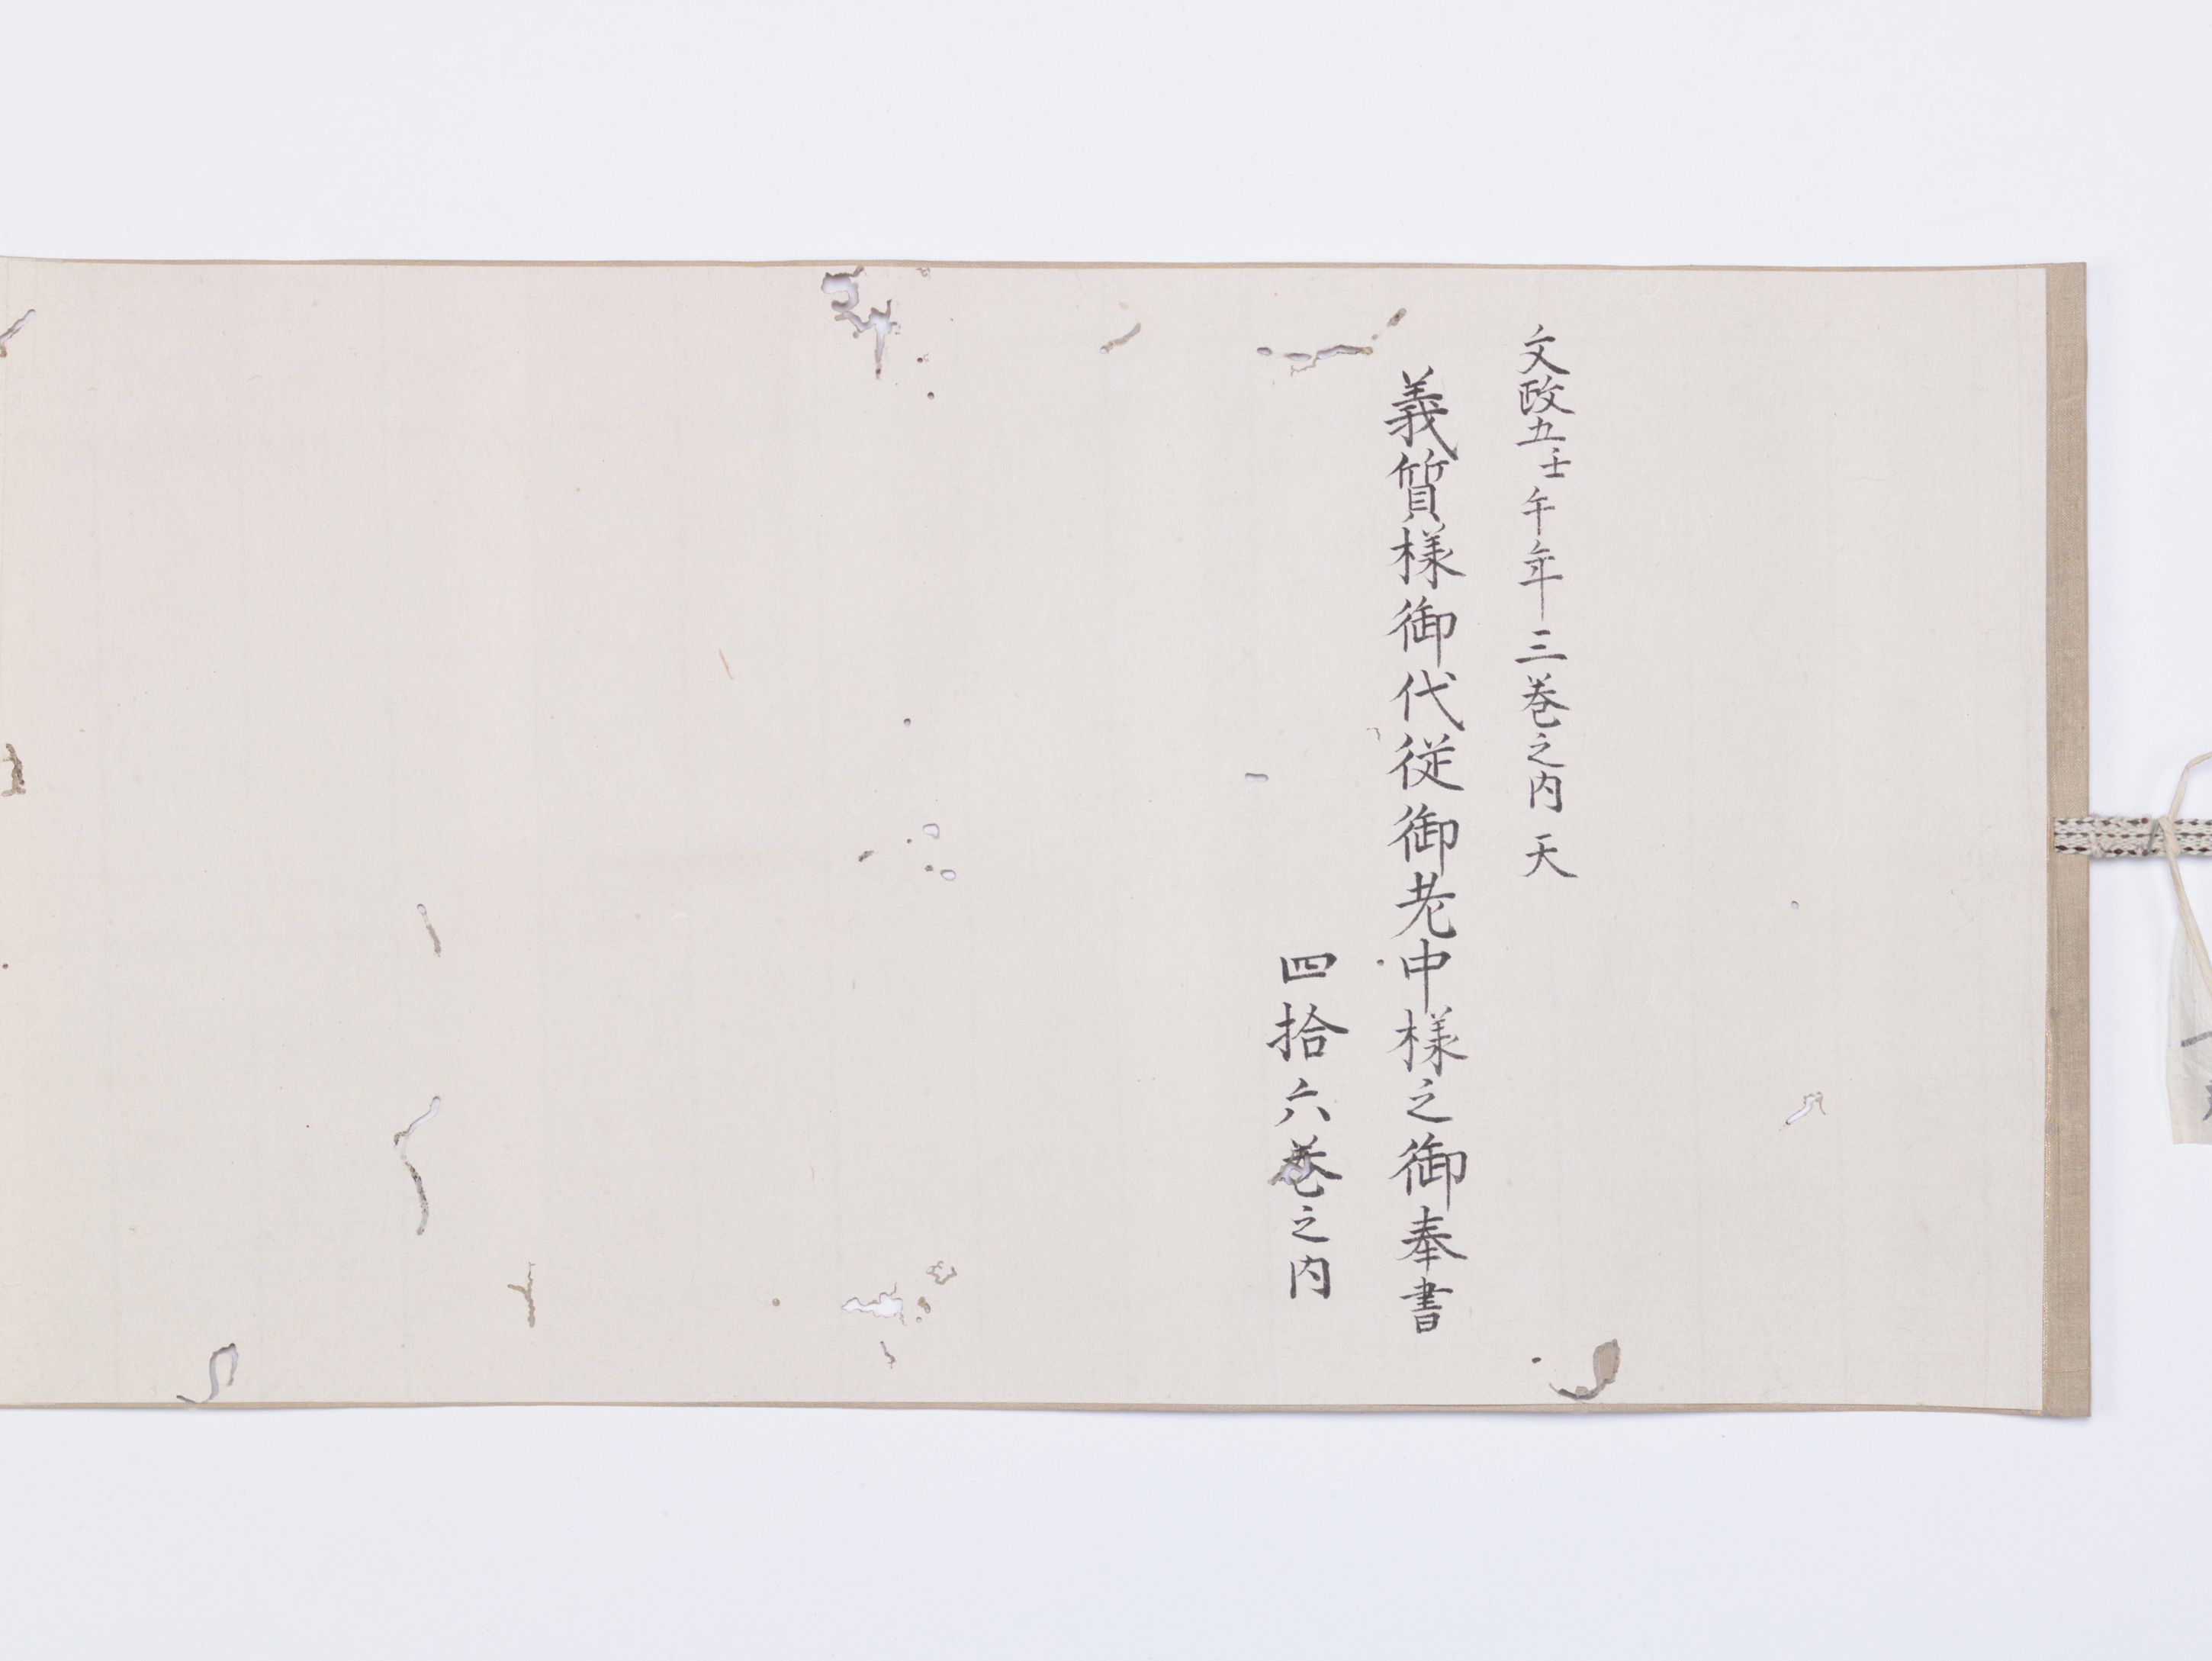 文政五壬午年三巻之内 天
義質様御代従御老中様之御奉書
四拾六巻之内